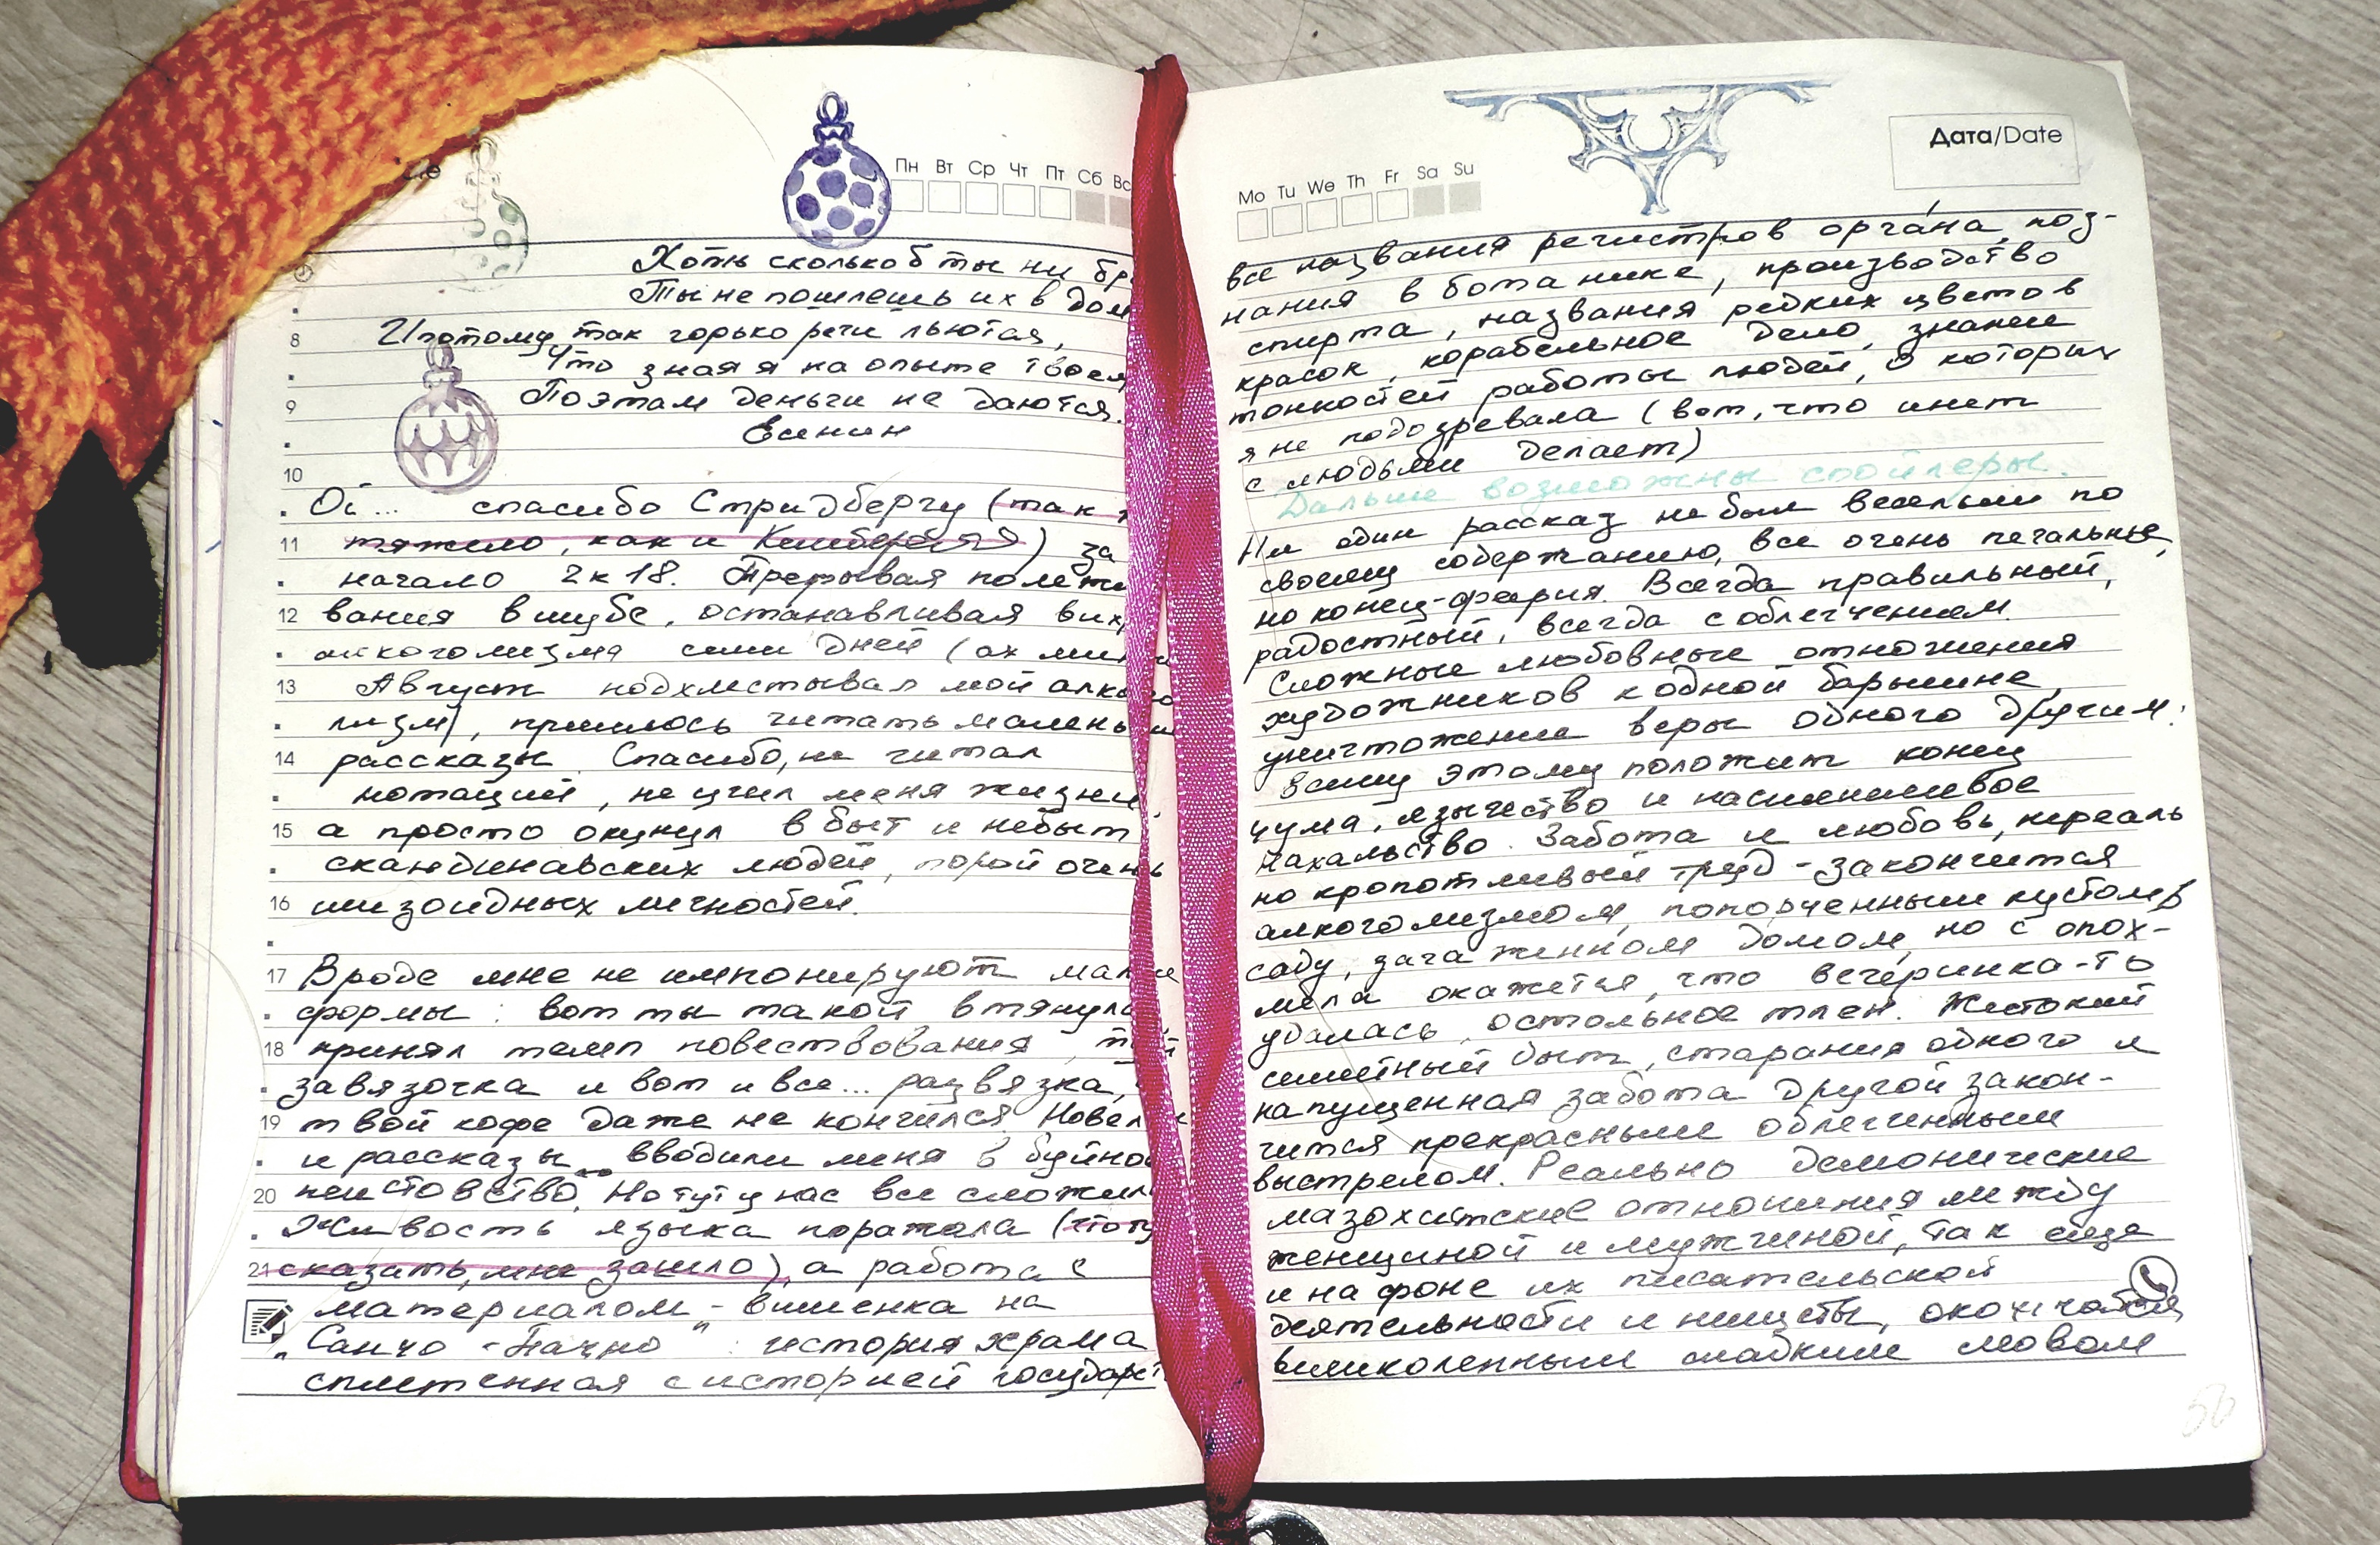 Пн Вт Ср Чт Пт Сб Вс
Хоть сколько б ты ни
Ты не пошлешь их в дом
8 И потому так горько речи льются,
Что зная я на опыте твоем
9 Поэтам деньги не даются.
Есенин
10
Ой... спасибо Стридбергу (так
11 тяжело, как и ) за
начало 2к18. Прерывая
12 вания в шубе, останавливая
алкоголизма семи дней (ах
13 Август подхлестывал мой алкого
лизм), пришлось читать малень
14 рассказы. Спасибо, не читал
нотаций, не учил меня жизни,
15 а просто окунул в быт и небыт
скандинавских людей, порой очень
16 шизоидных личностей.
17 Вроде мне не импонируют малые
формы: вот ты такой втянулс
18 принял темп повествования,
завязочка и вот и все... развязка,
19 твой кофе даже не кончился. Новел
и рассказы вводили меня в буйно
20 неистовство. Но тут у нас все сложил
Живость языка поражала (
21 сказать, мне зашло), а работа с
материалом - вишенка на
„Санчо-Панчо“: история храма
сплетенная с историей государст
Mo Tu We Th Fr Sa Su
Дата/Date
все названия регистров орга́на, поз-
нания в ботанике, производство
спирта, названия редких цветов
красок, корабельное дело, знание
тонкостей работы людей, о которых
я не подозревала (вот, что инет
с людьми делает)
Дальше возможны спойлеры.
Ни один рассказ не был веселым по
своему содержанию, все очень печальные,
но конец-феерия. Всегда правильный,
радостный, всегда с облегчением.
Сложные любовные отношения
художников к одной барышне,
уничтожение веры одного другим:
всему этому положит конец
чума, язычество и насмешливое
нахальство. Забота и любовь, нереаль
но кропотливый труд - закончится
алкоголизмом, попорченным кустом в
саду, загаженном домом, но с опох-
мела окажется, что вечеринка-то
удалась, остальное тлен. Жестокий
семейный быт, старания одного и
напущенная забота другой закон-
чится прекрасным облегченным
выстрелом. Реально демонические
мазохитские отношения между
женщиной и мужчиной, так еще
и на фоне их писательской
деятельности и нищеты,
великолепным сладким
50